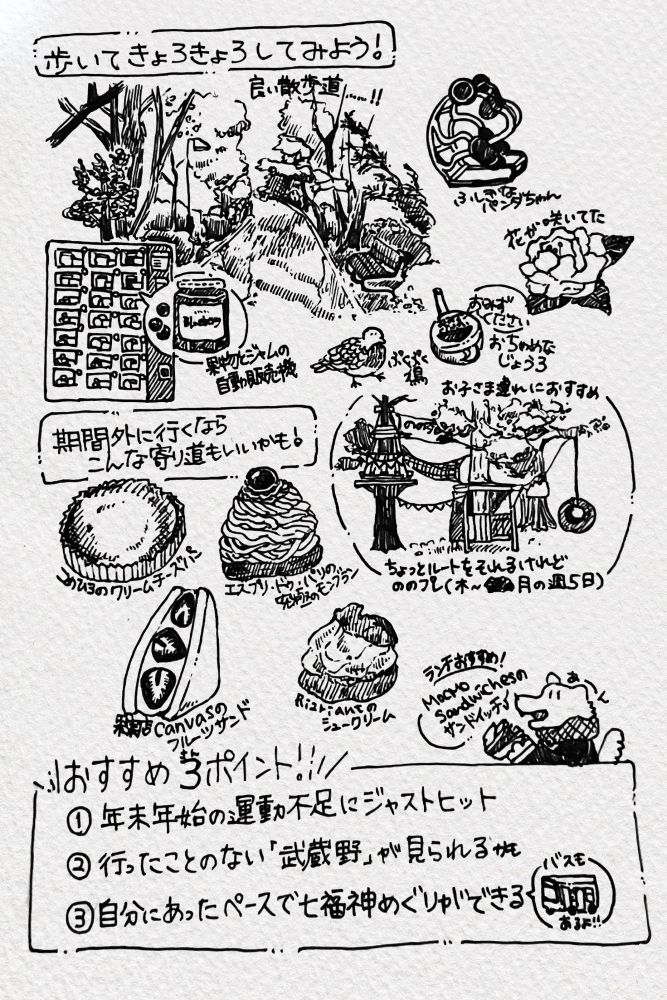 歩いてきょろきょろしてみよう!
良い散歩道…!!
ふしぎな
パンダちゃん
花が咲いてた
Blueberry
果物とジャムの
自動販売機
おみず
ください
おちゃめな
じょうろ
ぷくぷく
鳩
期間外に行くなら
こんな寄り道もいいかも!
お子さま連れにおすすめ
ちょっとルートをそれるけれど
ののプレ(木～月の週5日)
クリームチーズパイ
エスプリ・ドゥ・パリの
モンブラン
Canvasの
フルーツサンド
シュークリーム
ランチおすすめ!
Macro
Sandwichesの
サンドイッチ!
あーん
おすすめ3ポイント!!
① 年末年始の運動不足にジャストヒット
② 行ったことのない「武蔵野」が見られるかも
③ 自分にあったペースで七福神めぐりができる
バスも
あるよ!!